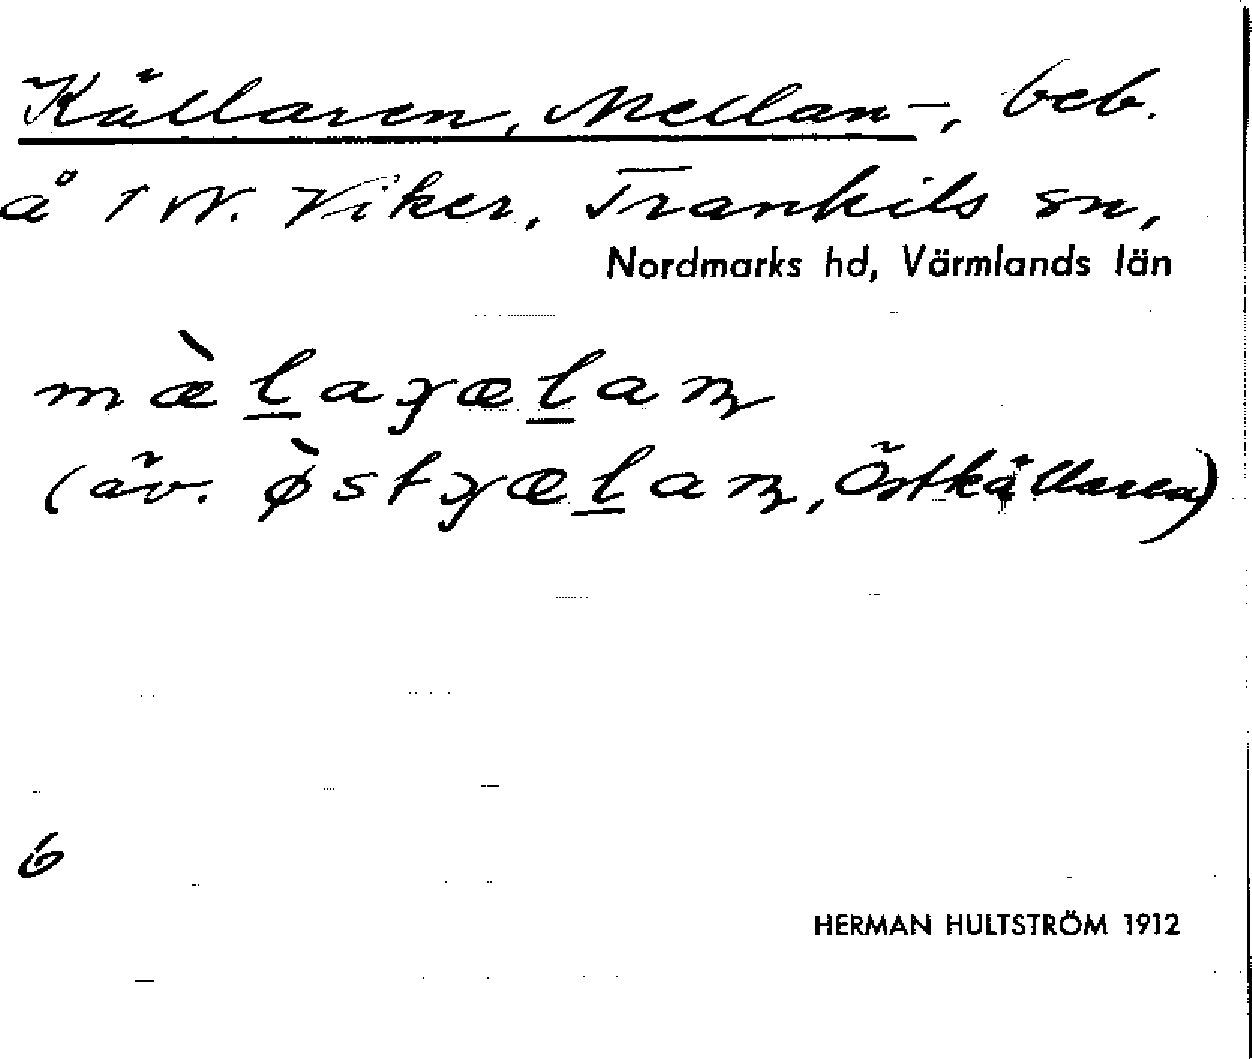 Källaren, Mellan-, beb.
å 1 N. Viker, Trankils sn,
Nordmarks hd, Värmlands län
mæ̀l̲aɣæl̲aɲ
(äv. ø̀stɣæl̲aɲ, Östkällaren)
6
HERMAN HULTSTRÖM 1912